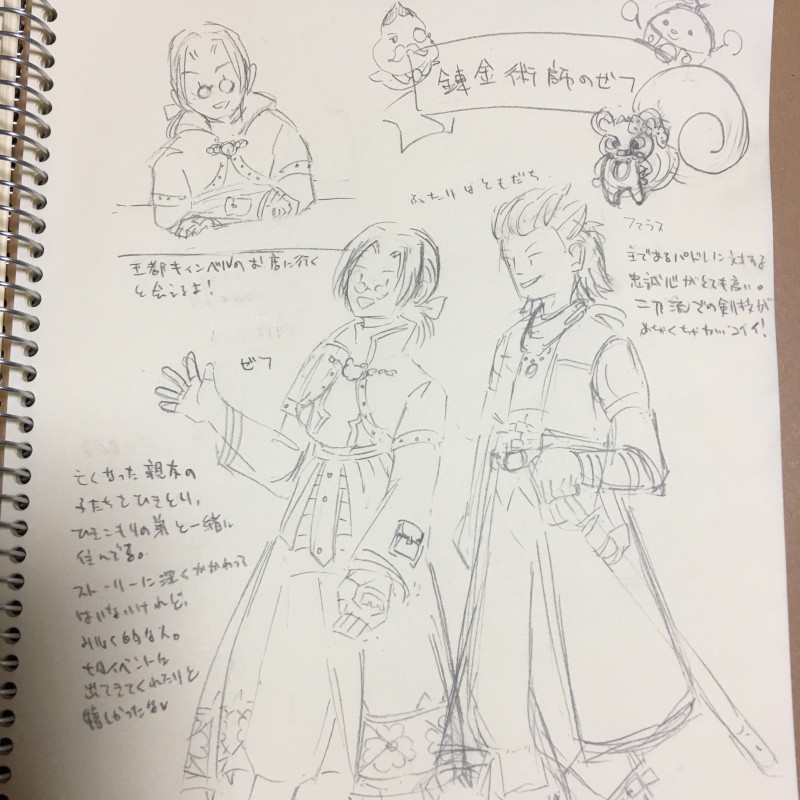 錬金術師のゼフ
ふたりはともだち
王都キィンベルのお店に行く
と会えるよ!
ファラス
主であるパドレに対する
忠誠心がとても高い。
二刀流での剣技が
めちゃくちゃカッコイイ!
ゼフ
亡くなった親友の
子たちをひきとり、
ひきこもりの弟と一緒に
住んでる。
ストーリーに深くかかわって
はいないけれど、
みりょく的な人。
七夕イベントに
出てきてくれたりと
嬉しかったな